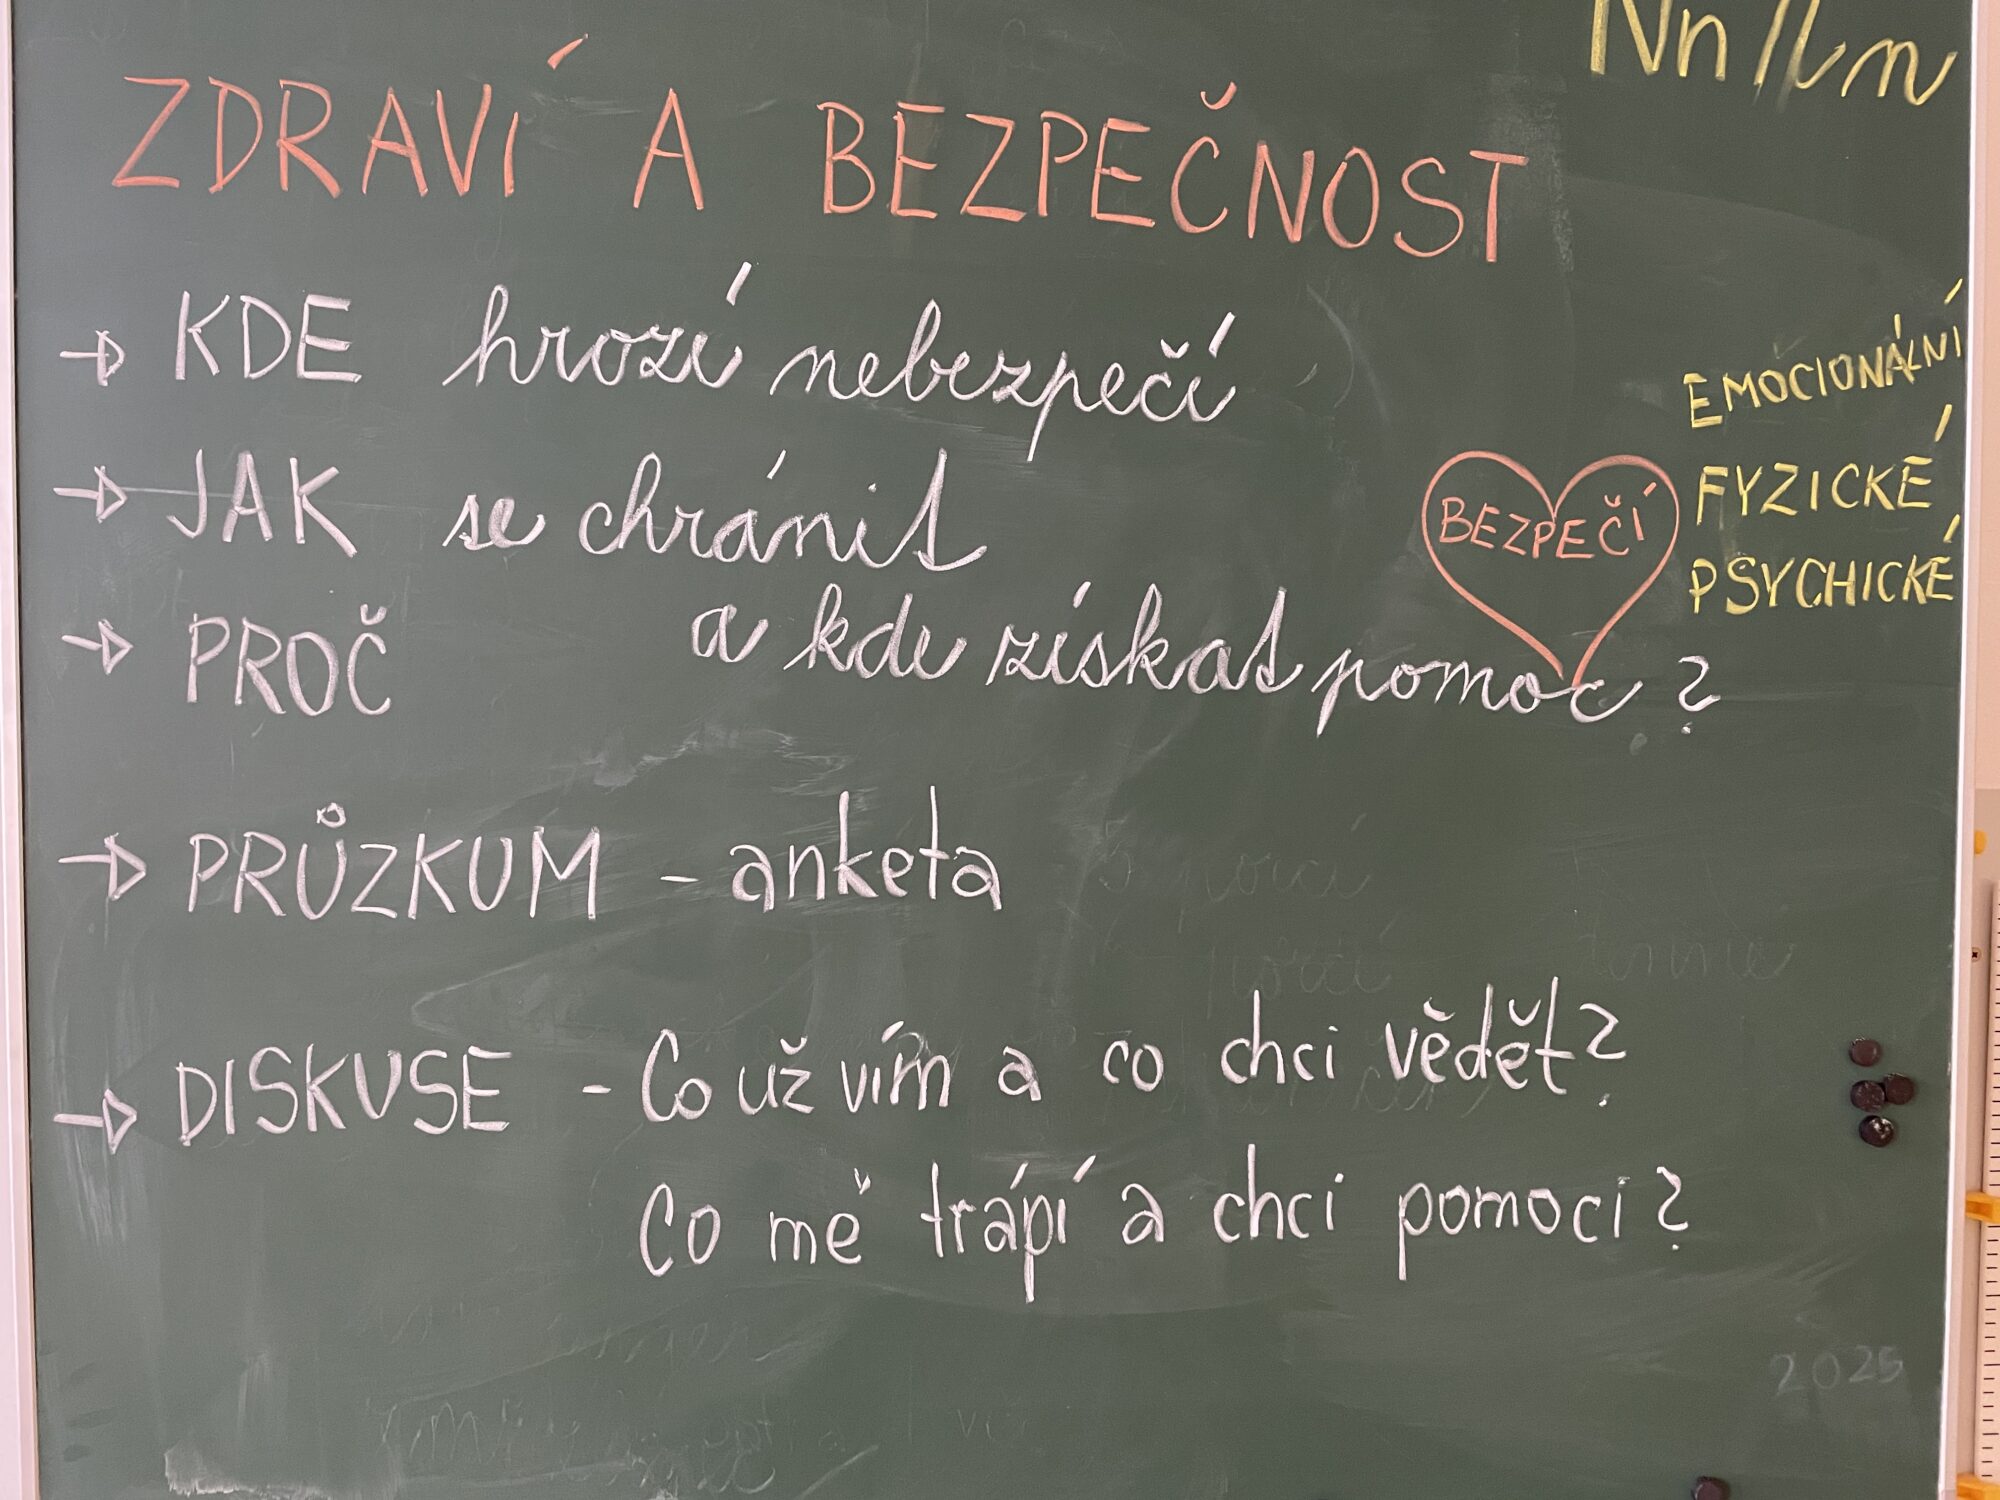 Nn Nn
ZDRAVÍ A BEZPEČNOST
KDE hrozí nebezpečí
JAK se chránit
PROČ a kde získat pomoc?
BEZPEČÍ
EMOCIONÁLNÍ
FYZICKÉ
PSYCHICKÉ
PRŮZKUM - anketa
DISKUSE - Co už vím a co chci vědět?
Co mě trápí a chci pomoci?
2025